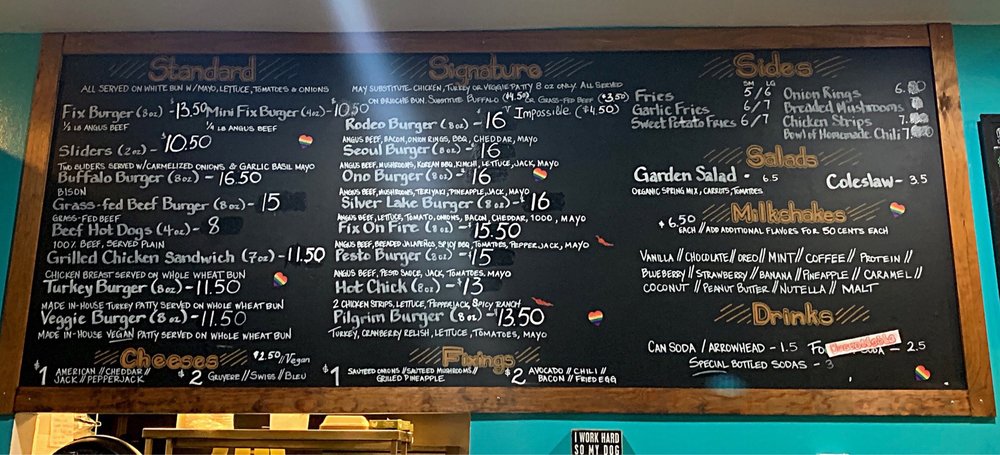 Standard
ALL SERVED ON WHITE BUN W/MAYO, LETTUCE, TOMATOES & ONIONS
Fix Burger (8oz) - $13.50 Mini Fix Burger (4oz) - $10.50
1/2 LB ANGUS BEEF 1/4 LB ANGUS BEEF
Sliders (2oz) - $10.50
TWO SLIDERS SERVED W/CARMELIZED ONIONS & GARLIC BASIL MAYO
Buffalo Burger (8oz) - 16.50
BISON
Grass-fed Beef Burger (8oz) - 15
GRASS-FED BEEF
Beef Hot Dogs (4oz) - 8
100% BEEF, SERVED PLAIN
Grilled Chicken Sandwich (7oz) - 11.50
CHICKEN BREAST SERVED ON WHOLE WHEAT BUN
Turkey Burger (8oz) - 11.50
MADE IN-HOUSE TURKEY PATTY SERVED ON WHOLE WHEAT BUN
Veggie Burger (8oz) - 11.50
MADE IN-HOUSE VEGAN PATTY SERVED ON WHOLE WHEAT BUN
Cheeses $2.50 // Vegan
$1 AMERICAN // CHEDDAR //
JACK // PEPPERJACK
$2 GRUYERE // SWISS // BLEU
Signature
MAY SUBSTITUTE CHICKEN, TURKEY OR VEGGIE PATTY 8 OZ ONLY. ALL SERVED
ON BRIOCHE BUN. SUBSTITUTE BUFFALO ($4.50) OR GRASS-FED BEEF ($3.50)
Impossible ($4.50)
Rodeo Burger (8oz) - 16
ANGUS BEEF, BACON, ONION RINGS, BBQ, CHEDDAR, MAYO
Seoul Burger (8oz) - 16
ANGUS BEEF, MUSHROOMS, KOREAN BBQ, KIMCHI, LETTUCE, JACK, MAYO
Ono Burger (8oz) - 16
ANGUS BEEF, MUSHROOMS, TERIYAKI, PINEAPPLE, JACK, MAYO
Silver Lake Burger (8oz) - $16
ANGUS BEEF, LETTUCE, TOMATO, ONIONS, BACON, CHEDDAR, 1000, MAYO
Fix On Fire (8oz) - $15.50
ANGUS BEEF, BREADED JALAPEÑOS, SPICY BBQ, TOMATOES, PEPPERJACK, MAYO
Pesto Burger (8oz) - $15
ANGUS BEEF, PESTO SAUCE, JACK, TOMATOES, MAYO
Hot Chick (8oz) - $13
2 CHICKEN STRIPS, LETTUCE, PEPPERJACK, SPICY RANCH
Pilgrim Burger (8oz) - $13.50
TURKEY, CRANBERRY RELISH, LETTUCE, TOMATOES, MAYO
Fixings
$1 SAUTEED ONIONS // SAUTEED MUSHROOMS //
GRILLED PINEAPPLE
$2 AVOCADO // CHILI //
BACON // FRIED EGG
Sides
SM LG
Fries 5/6
Garlic Fries 6/7
Sweet Potato Fries 6/7
Onion Rings 6.
Breaded Mushrooms
Chicken Strips 7.
Bowl of Homemade Chili 7.
Salads
Garden Salad - 6.5
ORGANIC SPRING MIX, CARROTS, TOMATOES
Coleslaw - 3.5
Milkshakes
$6.50 EACH // ADD ADDITIONAL FLAVORS FOR 50 CENTS EACH
VANILLA // CHOCOLATE // OREO // MINT // COFFEE // PROTEIN //
BLUEBERRY // STRAWBERRY // BANANA // PINEAPPLE // CARAMEL //
COCONUT // PEANUT BUTTER // NUTELLA // MALT
Drinks
CAN SODA / ARROWHEAD - 1.5
2.5
SPECIAL BOTTLED SODAS - 3
I WORK HARD
SO MY DOG